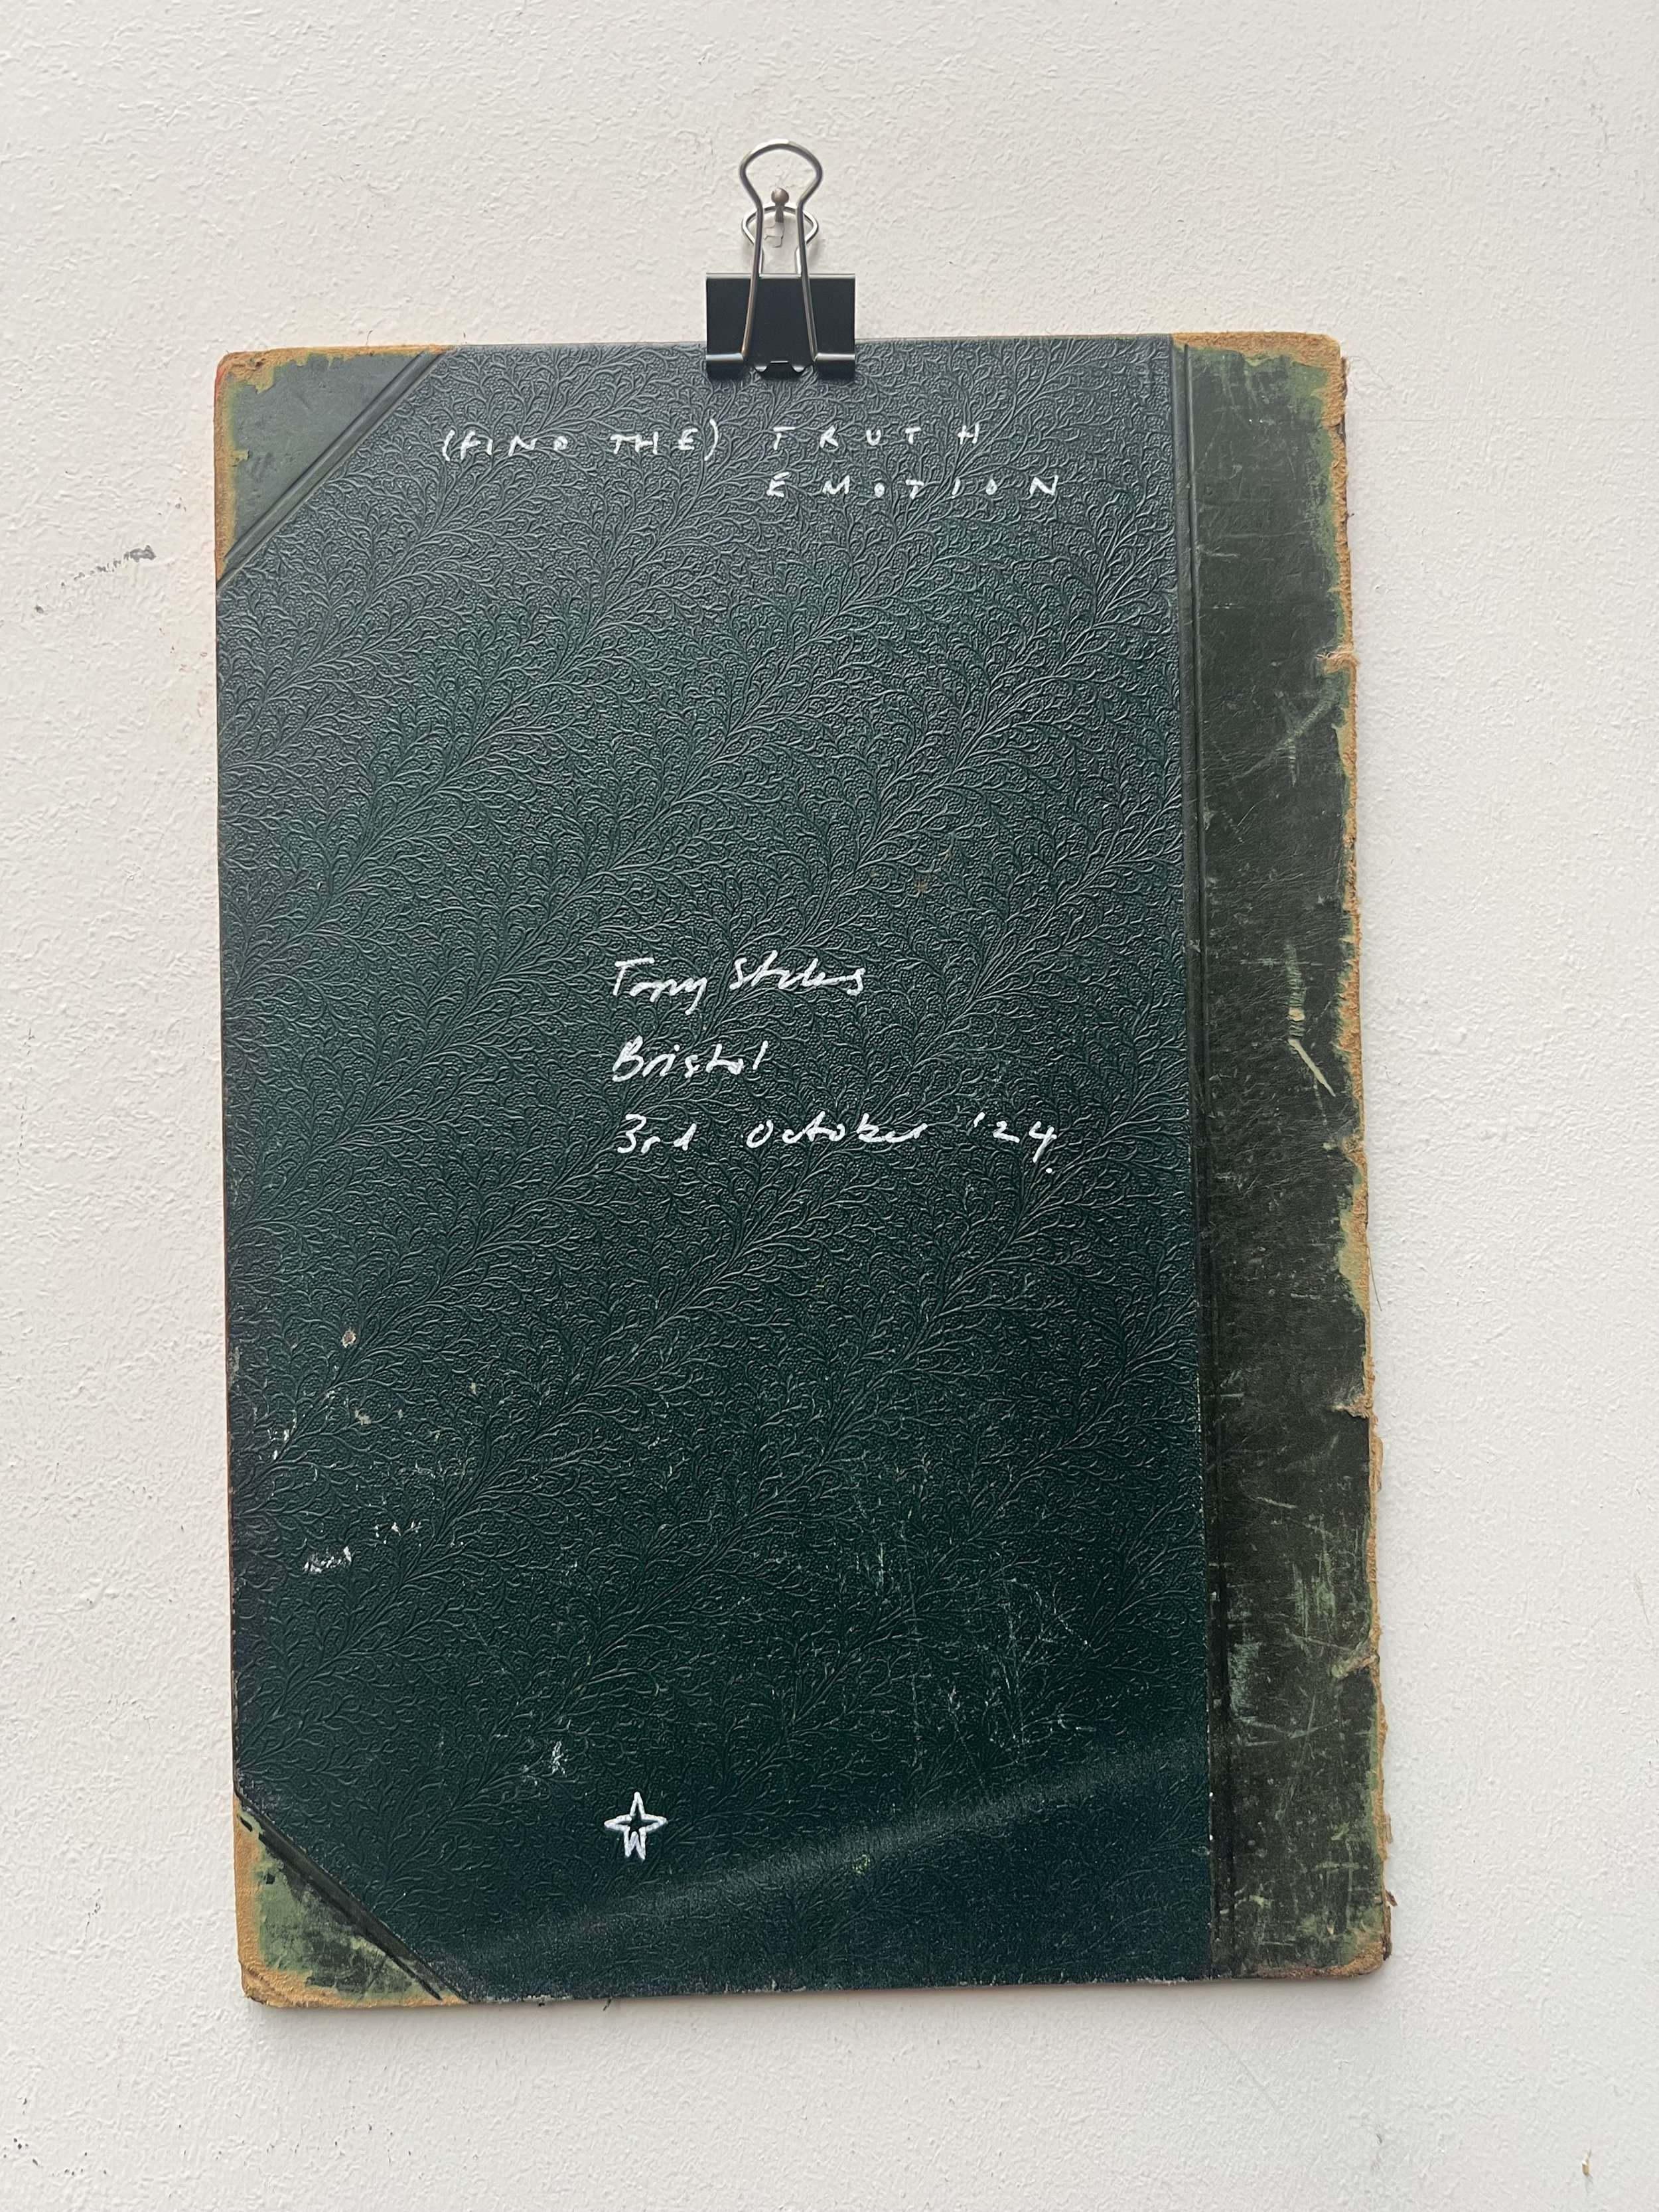 (FIND THE) TRUTH
EMOTION
Tony
Bristol
3rd October '24.